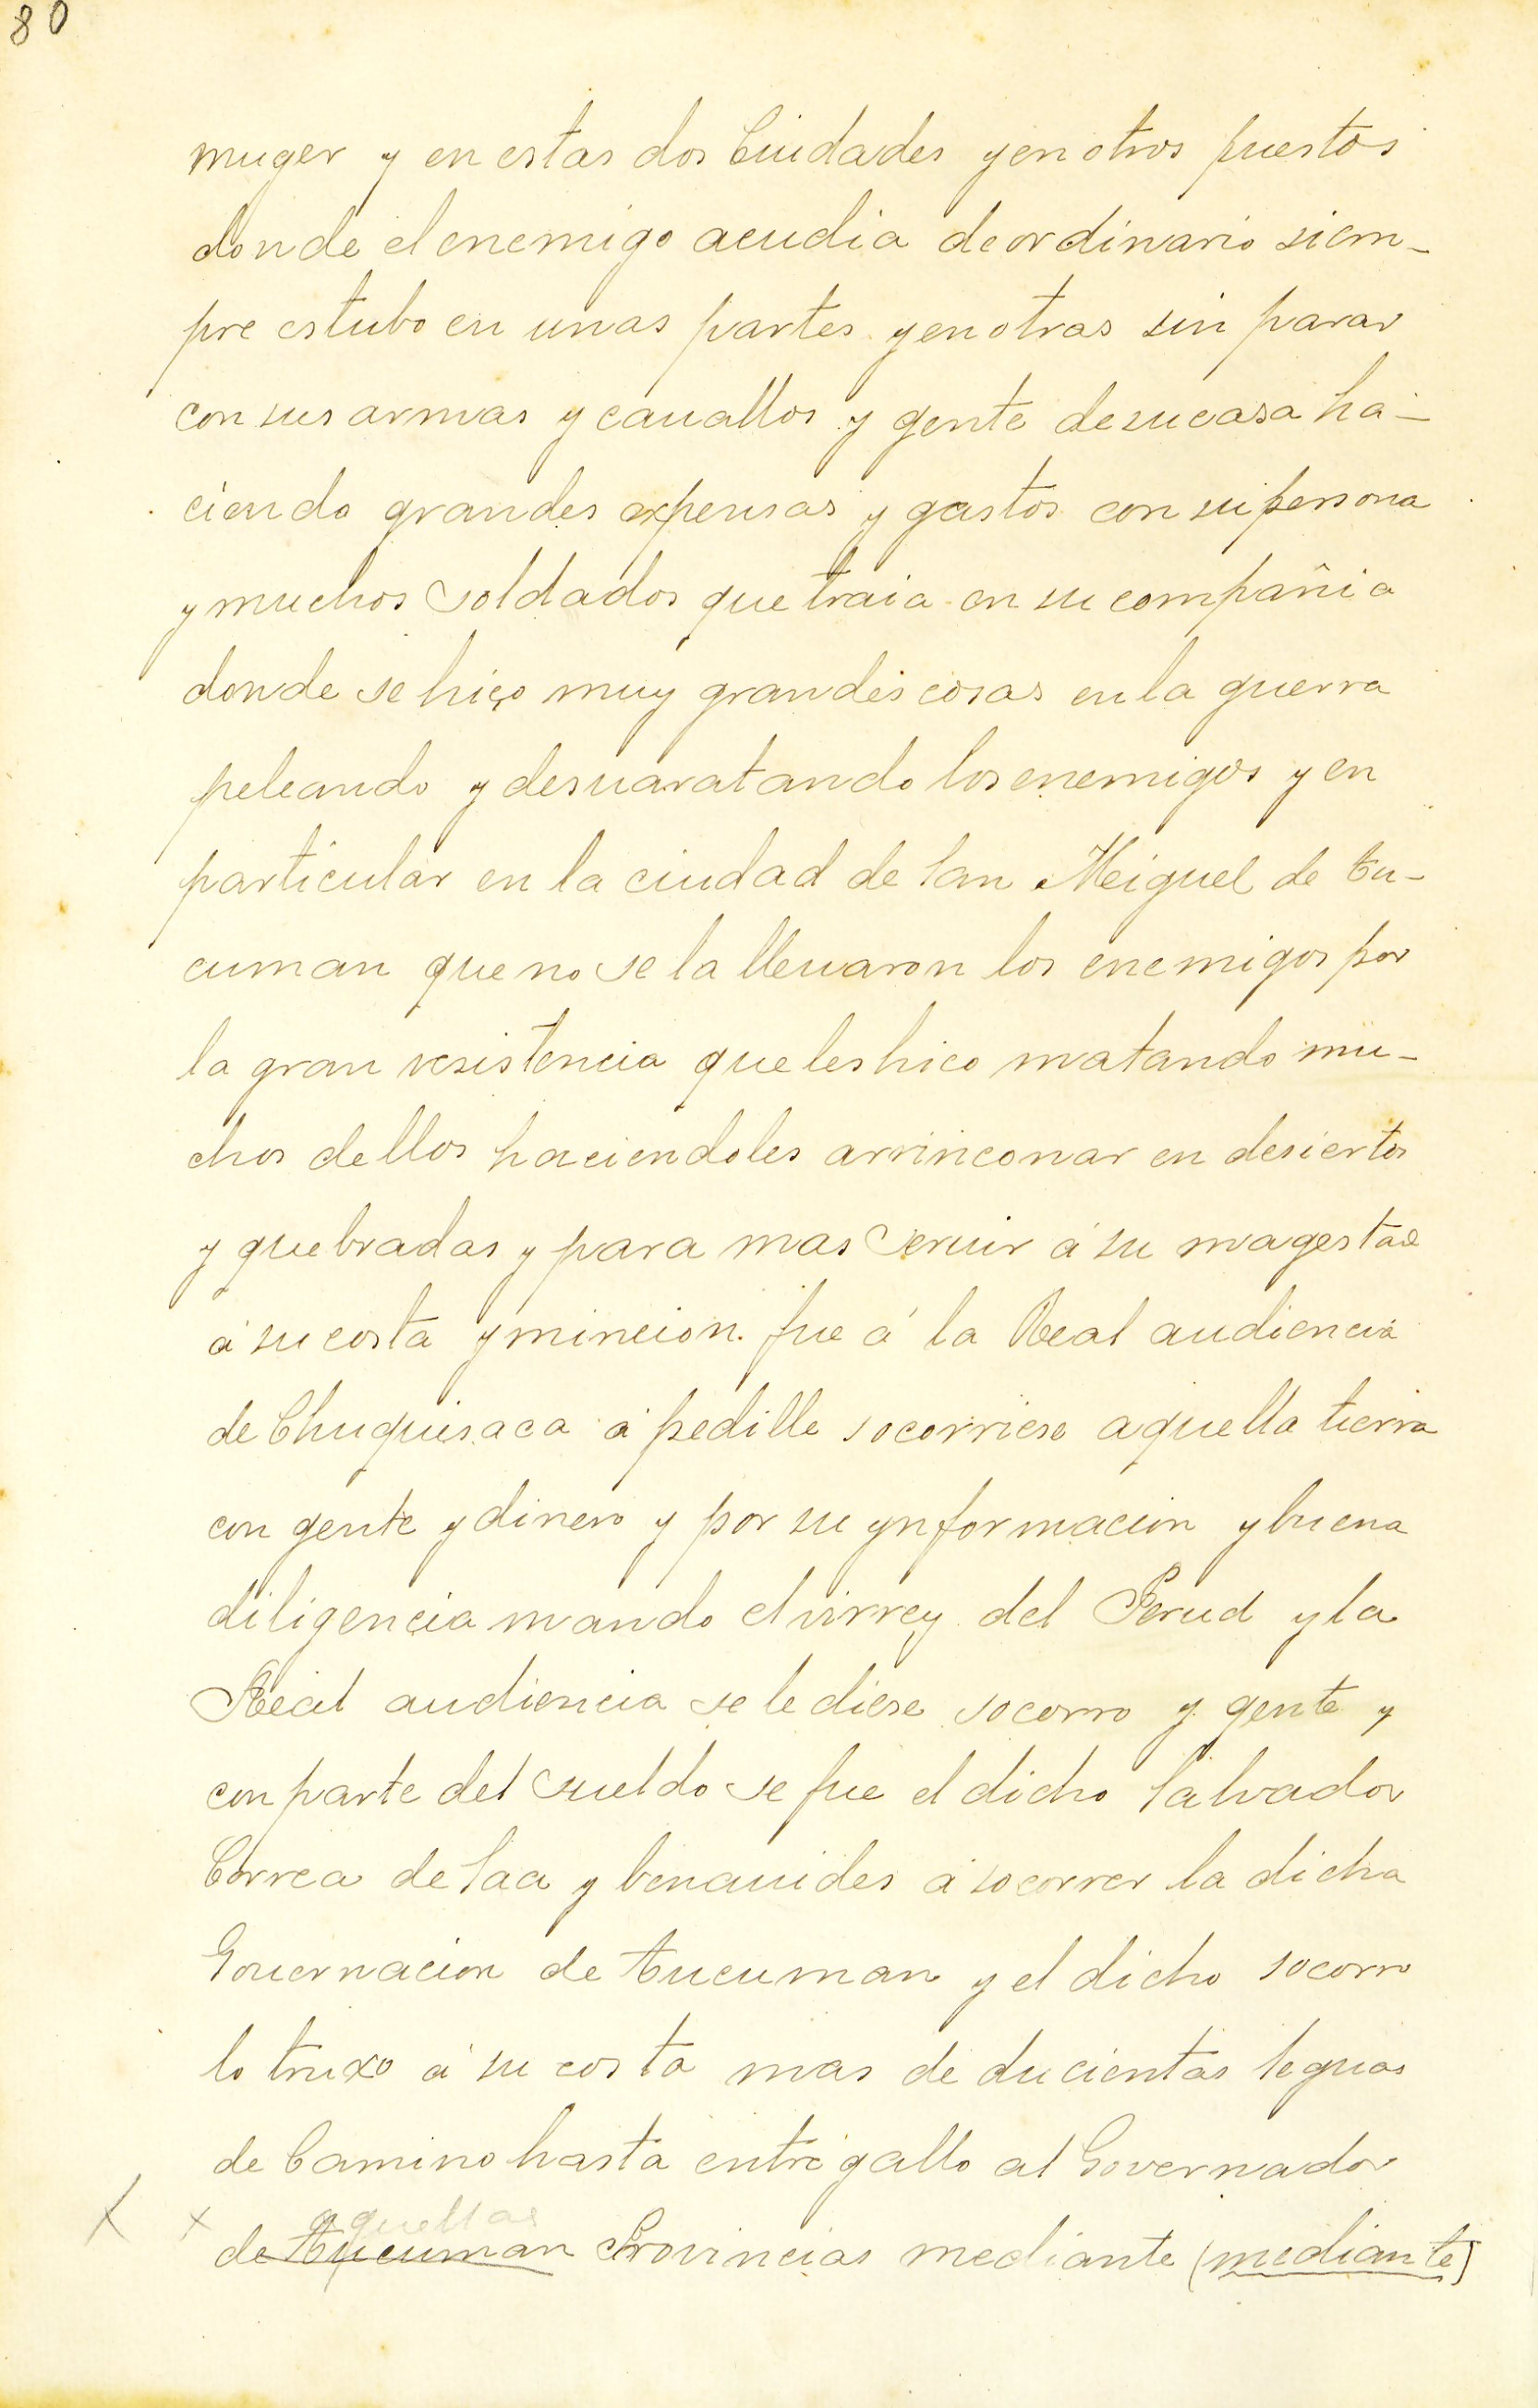 80
muger y en estas dos Ciudades y en otros puestos
donde el enemigo acudia de ordinario siem-
pre estubo en unas partes y en otras sin parar
con sus armas y cauallos y gente de su casa ha-
ciendo grandes expensas y gastos con su persona
y muchos soldados que traia en su compañia
donde se hiço muy grandes cosas en la guerra
peleando y desuaratando los enemigos y en
particular en la ciudad de San Meiguel de tu-
cuman que no se la lleuaron los enemigos por
la gran resistencia que les hico matando mu-
chos dellos haciendoles arrinconar en desiertos
y quebradas y para mas seruir á su magestad
á su costa y mincion. fue á la Real audiencia
de Chuquisaca á pedille socorriese aquella tierra
con gente y dinero y por su ynformacion y buena
diligencia mando el virrey del Perud y la
Real audiencia se le diese socorro y gente y
con parte del sueldo se fue el dicho Salvador
Correa de Saa y benauides á socorrer la dicha
Gouernacion de tucuman y el dicho socorro
lo truxo á su costa mas de ducientas leguas
de Camino hasta entregallo al Governador
x x aquellas
de Tucuman Provincias mediante (mediante)